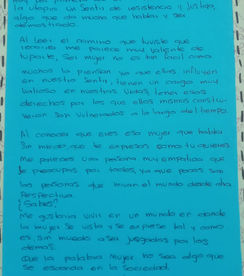 la utopia un sentir de resistencia y justicia,
algo que da mucho que hablar y ser
demostrado.
Al leer el camino que tuviste que
recorrer me parece muy valiente de
tu parte, Ser mujer no es tan facil como
muchos lo piensan ya que ellos influyen
en nuestro Sentir, tener un cargo muy
valioso en nuestras vidas, tener esos
derechos por los que ellos mismos
Vulnerados a lo largo del tiempo.
Al conocer que eres esa mujer que habla
Sin miedo, que te expresas como tu quieres
Me pareces una persona muy empatica que
te preocupas por todos, ya que pocas son
las personas que miran el mundo desde otra
Perspectiva.
¿Sabes?
Me gustaria vivir en un mundo en donde
la mujer se vista y se exprese tal y como
es sin miedo a ser juzgadas por los
demas.
Que la palabra Mujer no sea algo que
se esconda en la Sociedad.